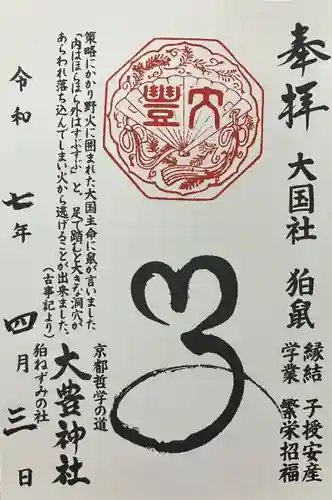 奉拝
大国社　狛鼠
縁結　子授安産
学業　繁栄招福
大豊
策略にかかり野火に囲まれた大国主命に鼠が言いました
「内はほらほら外はすぶすぶ」と。足で踏むと大きな洞穴が
あらわれ落ち込んでしまい火から逃げることが出来ました。
（古事記より）
京都哲学の道
大豊神社
狛ねずみの社
令和　七年　四月　三日